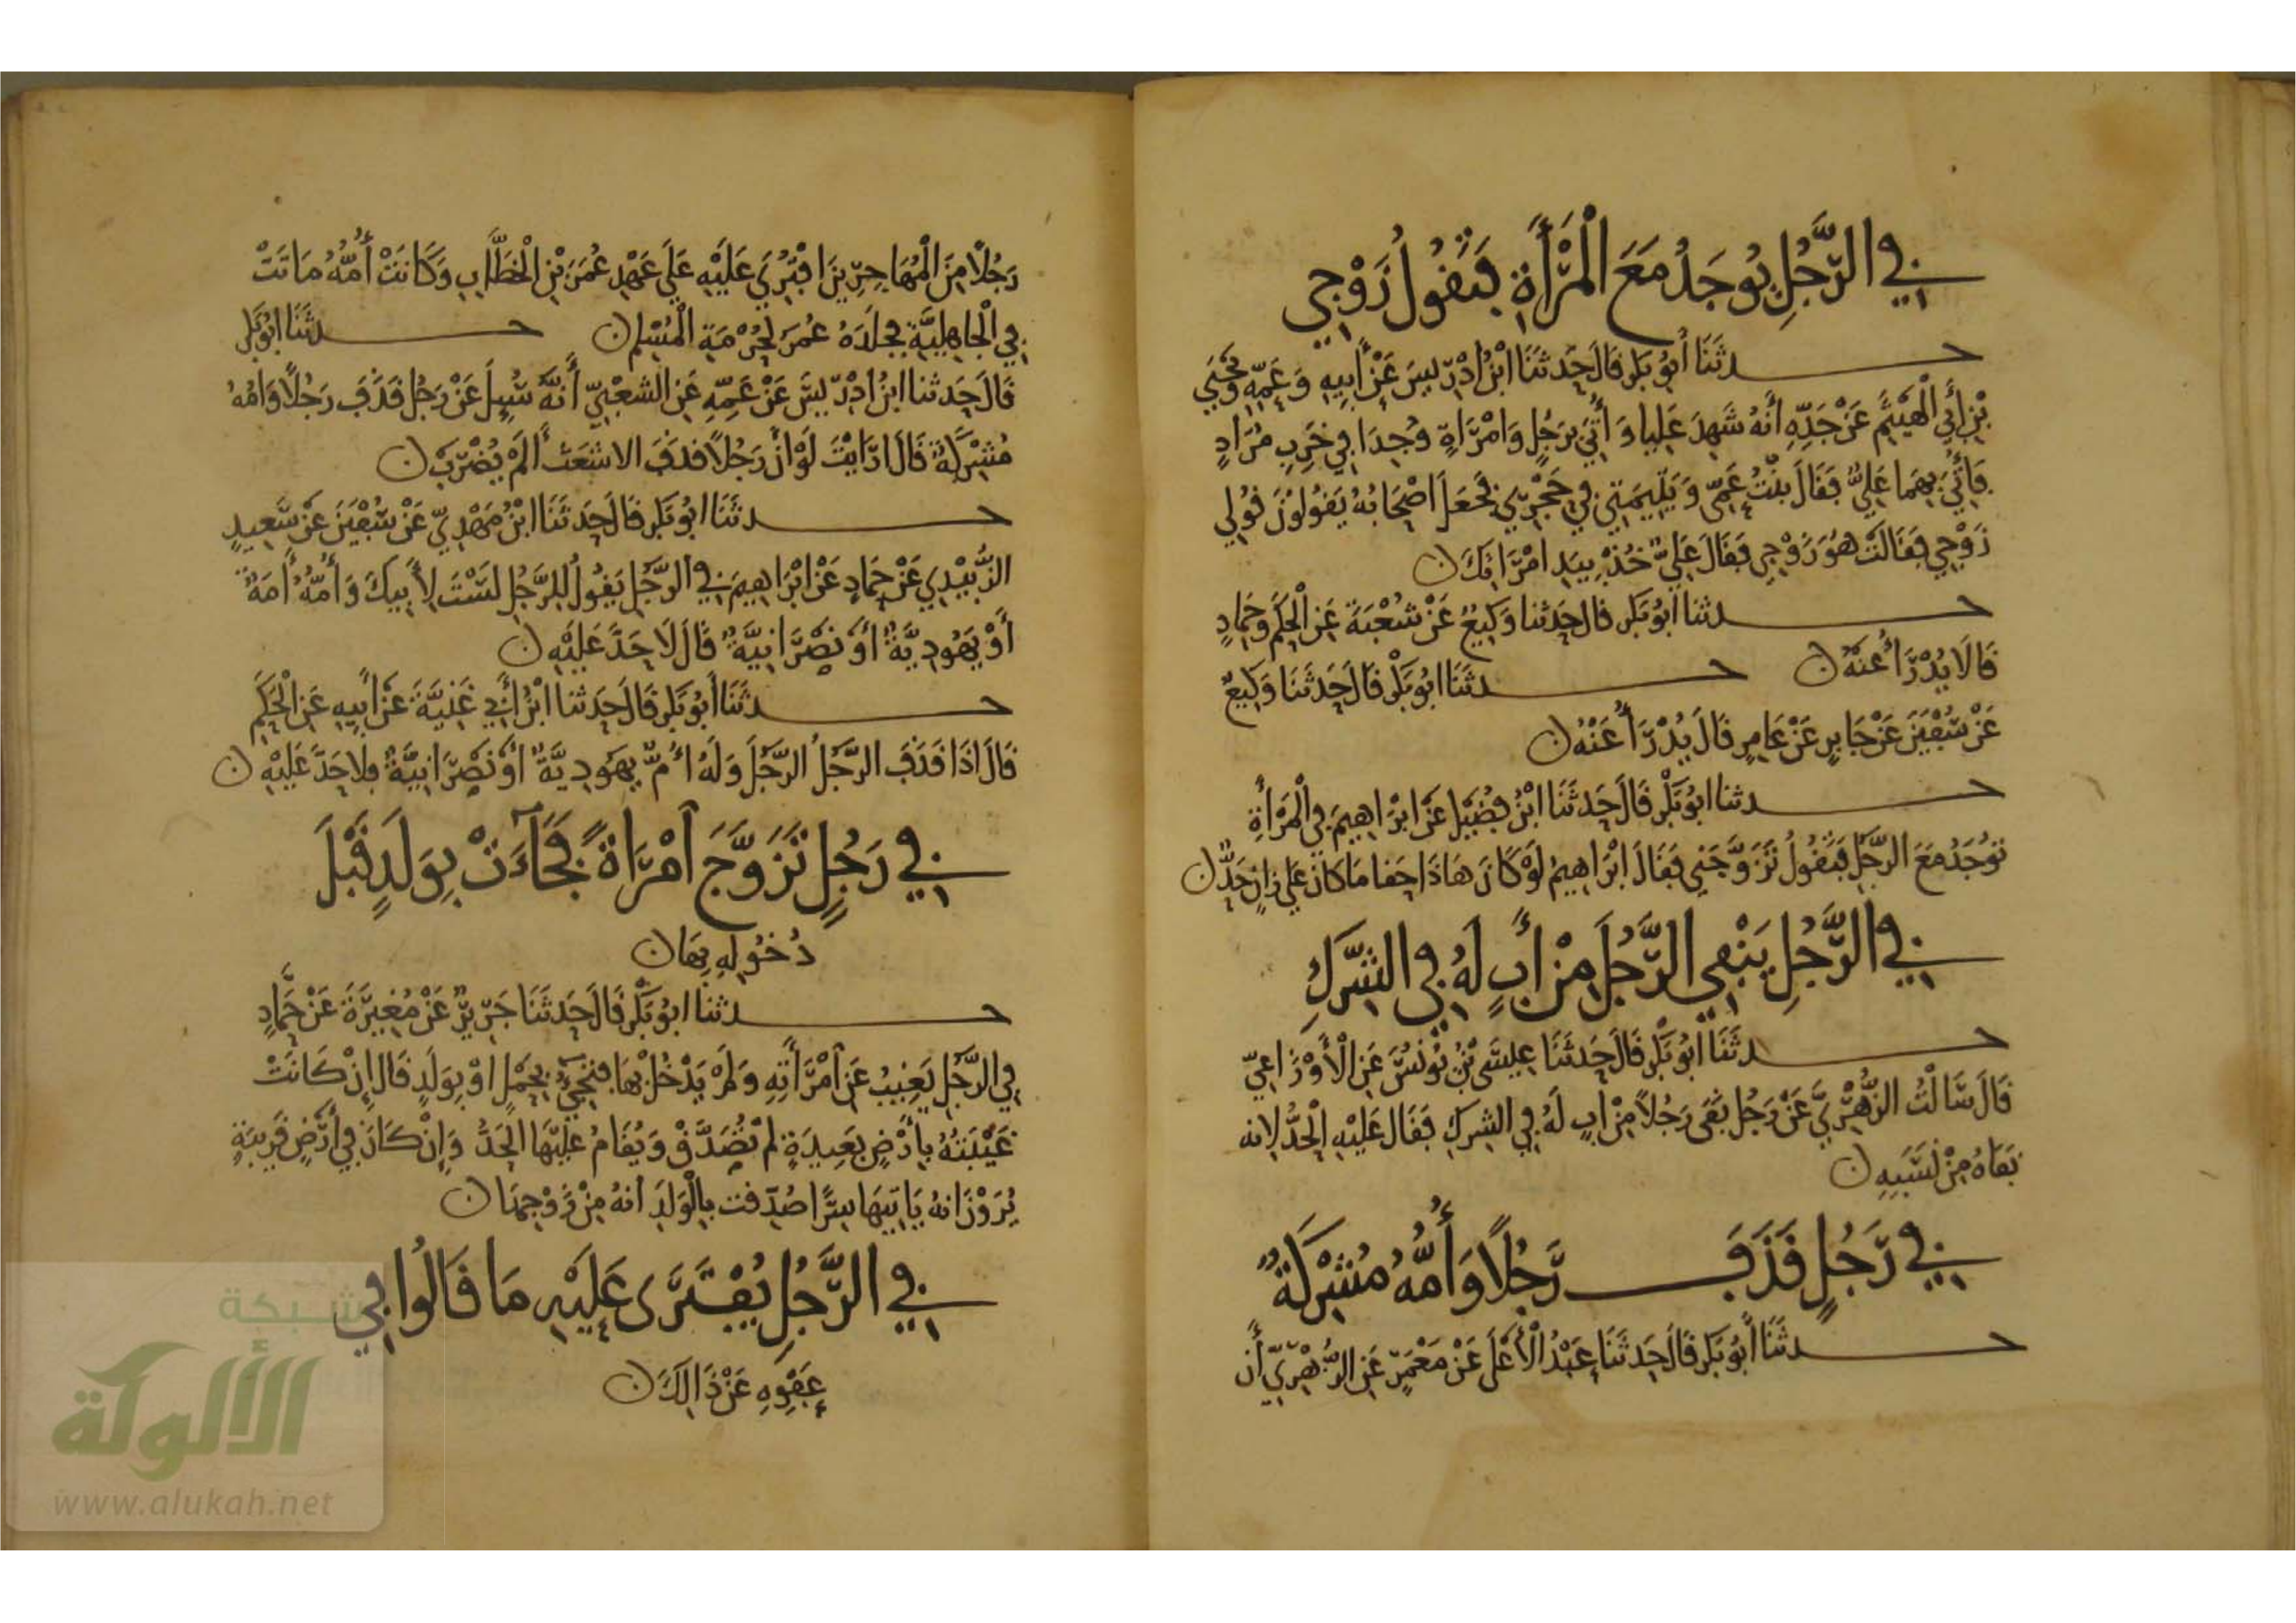 في الرَّجُلِ يُوجَدُ مَعَ الْمَرْأَةِ فَتَقُولُ زَوْجِي
حدثَنَا أَبُو بَكر قَالَ حَدثَنَا ابْنُ ادْرِيسَ عَنْ أَبِيهِ وَعَمِّهِ وَيَحْيَى
بْنِ أَبِي الْهَيْثَمِ عَنْ جَدِّهِ أَنَّهُ شَهِدَ عَلِيا وَأُتِيَ بِرَجُلٍ وَامْرَأةٍ وُجِدَا فِي خَرِبِ مُرَادٍ
فَأُتِيَ بِهِمَا عَلِيٌّ فَقَالَ بِنْتُ عَمِّي وَيَتِيمَتِي فِي حَجْرِي فَجَعَلَ اصْحَابُهُ يَقُولُونَ قُولِي
زَوْجِي فَقَالَتْ هُوَ زَوْجِي فَقَالَ عَلِيٌّ خُذْ بِيَدِ امْرَاتِكَ
حدثنا ابُو بَكر قال حَدثنا وَكِيعٌ عَنْ شُعْبَةَ عَنِ الْحَكَمِ وَحَمادٍ
قَالَا يُدْرَأُ عَنْهُ حدثَنَا ابُو بَكْر قَالَ حَدثَنَا وَكِيعٌ
عَنْ سُفْيَنَ عَنْ جَابِرٍ عَنْ عَامِرٍ قَالَ يُدْرَأُ عَنْهُ
حدثنا ابُو بَكْر قَالَ حَدثَنَا ابْنُ فُضَيْلٍ عَنْ ابْرَاهِيمَ فِي الْمَرْأَةِ
تُوجَدُ مَعَ الرَّجُلِ فَتَقُولُ تَزَوَّجَنِي فَقَالَ ابْرَاهِيمُ لَوْ كَانَ هَاذَا حَقا مَا كَانَ عَلَى زانٍ حَدٌّ
في الرَّجُلِ يَنْفِي الرَّجُلَ مِنْ أَبٍ لَهُ فِي الشِّرْكِ
حدثَنَا ابُو بَكْر قَالَ حَدثَنَا عِيسَى بْنُ يُونُسَ عَنِ الْأَوْزَاعِيِّ
قَالَ سَالْتُ الزُّهْرِيَّ عَنْ رَجُلٍ نَفَى رَجُلاً مِنْ ابٍ لَهُ فِي الشِركِ فَقَال عَلَيْهِ الْحَدُّ لانه
نَفَاهُ مِنْ نَسَبِهِ
في رَجُلٍ قَذَفَ رَجُلًا وَأُمُّهُ مُشْرِكَةٌ
حدثَنَا أَبُو بَكر قَالَ حَدثَنَا عَبْدُ الْأَعْلَى عَنْ مَعْمَرٍ عَنِ الزُّهْرِيِّ أَن
رَجُلاً مِنَ الْمُهَاجِرِينَ افْتُرِيَ عَلَيْهِ عَلَى عَهْدِ عُمَرَ بْنِ الْخَطَّابِ وَكَانَتْ أُمُّهُ مَاتَتْ
فِي الْجَاهِلِيَّةِ فجَلَدَهُ عُمَرُ لِحُرْمَةِ الْمُسْلِمِ حدثَنَا ابُو بَكر
قَالَ حَدثنا ابنُ ادْرِيسَ عَنْ عَمِّهِ عَنِ الشَّعْبِيِّ أَنَّهُ سُيِلَ عَنْ رَجُلٍ قَذَفَ رَجُلاً وَامُهُ
مُشْرِكَةٌ قَالَ ارَايْتَ لَوْ أَنَّ رَجُلاً قذَفَ الاشْعَث أَلَمْ يُضْرَبْ
حدثَنَا ابُو بَكر قَالَ حَدثَنَا ابْنُ مَهْدِيٍّ عَنْ سُفْيَنَ عَنْ سَعِيدٍ
الزُّبَيْدِي عَنْ حَمادٍ عَنْ ابْرَاهِيمَ فِي الرَّجُلِ يَقُولُ لِلرَّجُلِ لَسْتَ لِأَبِيكَ وَأُمُّهُ أَمَةٌ
أَوْ يَهُودِيَّةٌ أوْ نَصْرَانِيَّةٌ قَالَ لَا حَدَّ عَلَيْهِ
حدثَنَا أَبُو بَكر قَالَ حَدثنا ابْنُ أَبِي غَنِيَّةَ عَنْ أَبِيهِ عَنِ الْحَكَمِ
قَالَ اذَا قَذَفَ الرَّجُلُ الرَّجُلَ وَلَهُ أُمٌّ يهُودِيَّةٌ أوْ نَصْرَانِيَّةٌ فلا حَدَّ عَلَيْهِ
في رَجُلٍ تَزَوَّجَ امْرَاةً فَجَآءَتْ بِوَلَدٍ قَبْلَ
دُخُولِهِ بِهَا
حدثنا ابُو بَكْر قَالَ حَدثَنَا جَرِيرٌ عَنْ مُغِيرَةَ عَنْ حَمَّادٍ
فِي الرَّجُلِ يَغِيبُ عَنِ امْرَأَتِهِ وَلَمْ يَدْخُلْ بِهَا فتَجِيُ بِحَمْلٍ اوْ بِوَلَدٍ قَال إِنْ كَانَتْ
غَيْبَتُهُ بِأَرْضٍ بَعِيدَةٍ لمْ تُصَدَّقْ وَيُقَامُ عَلَيْهَا الْحَدُّ وَإِنْ كَانَ فِي أَرْضٍ قَرِيبَةٍ
يُرَوْنَ انهُ يَاتِيهَا سِرًّا صُدِّقت بِالْوَلَدِ أنهُ مِنْ زَوْجِهَا
في الرَّجُلِ يُفْتَرَى عَلَيْهِ مَا قَالُوا فِي
عَفْوِهِ عَنْ ذَالِكَ
شبكة
الألوكة
www.alukah.net